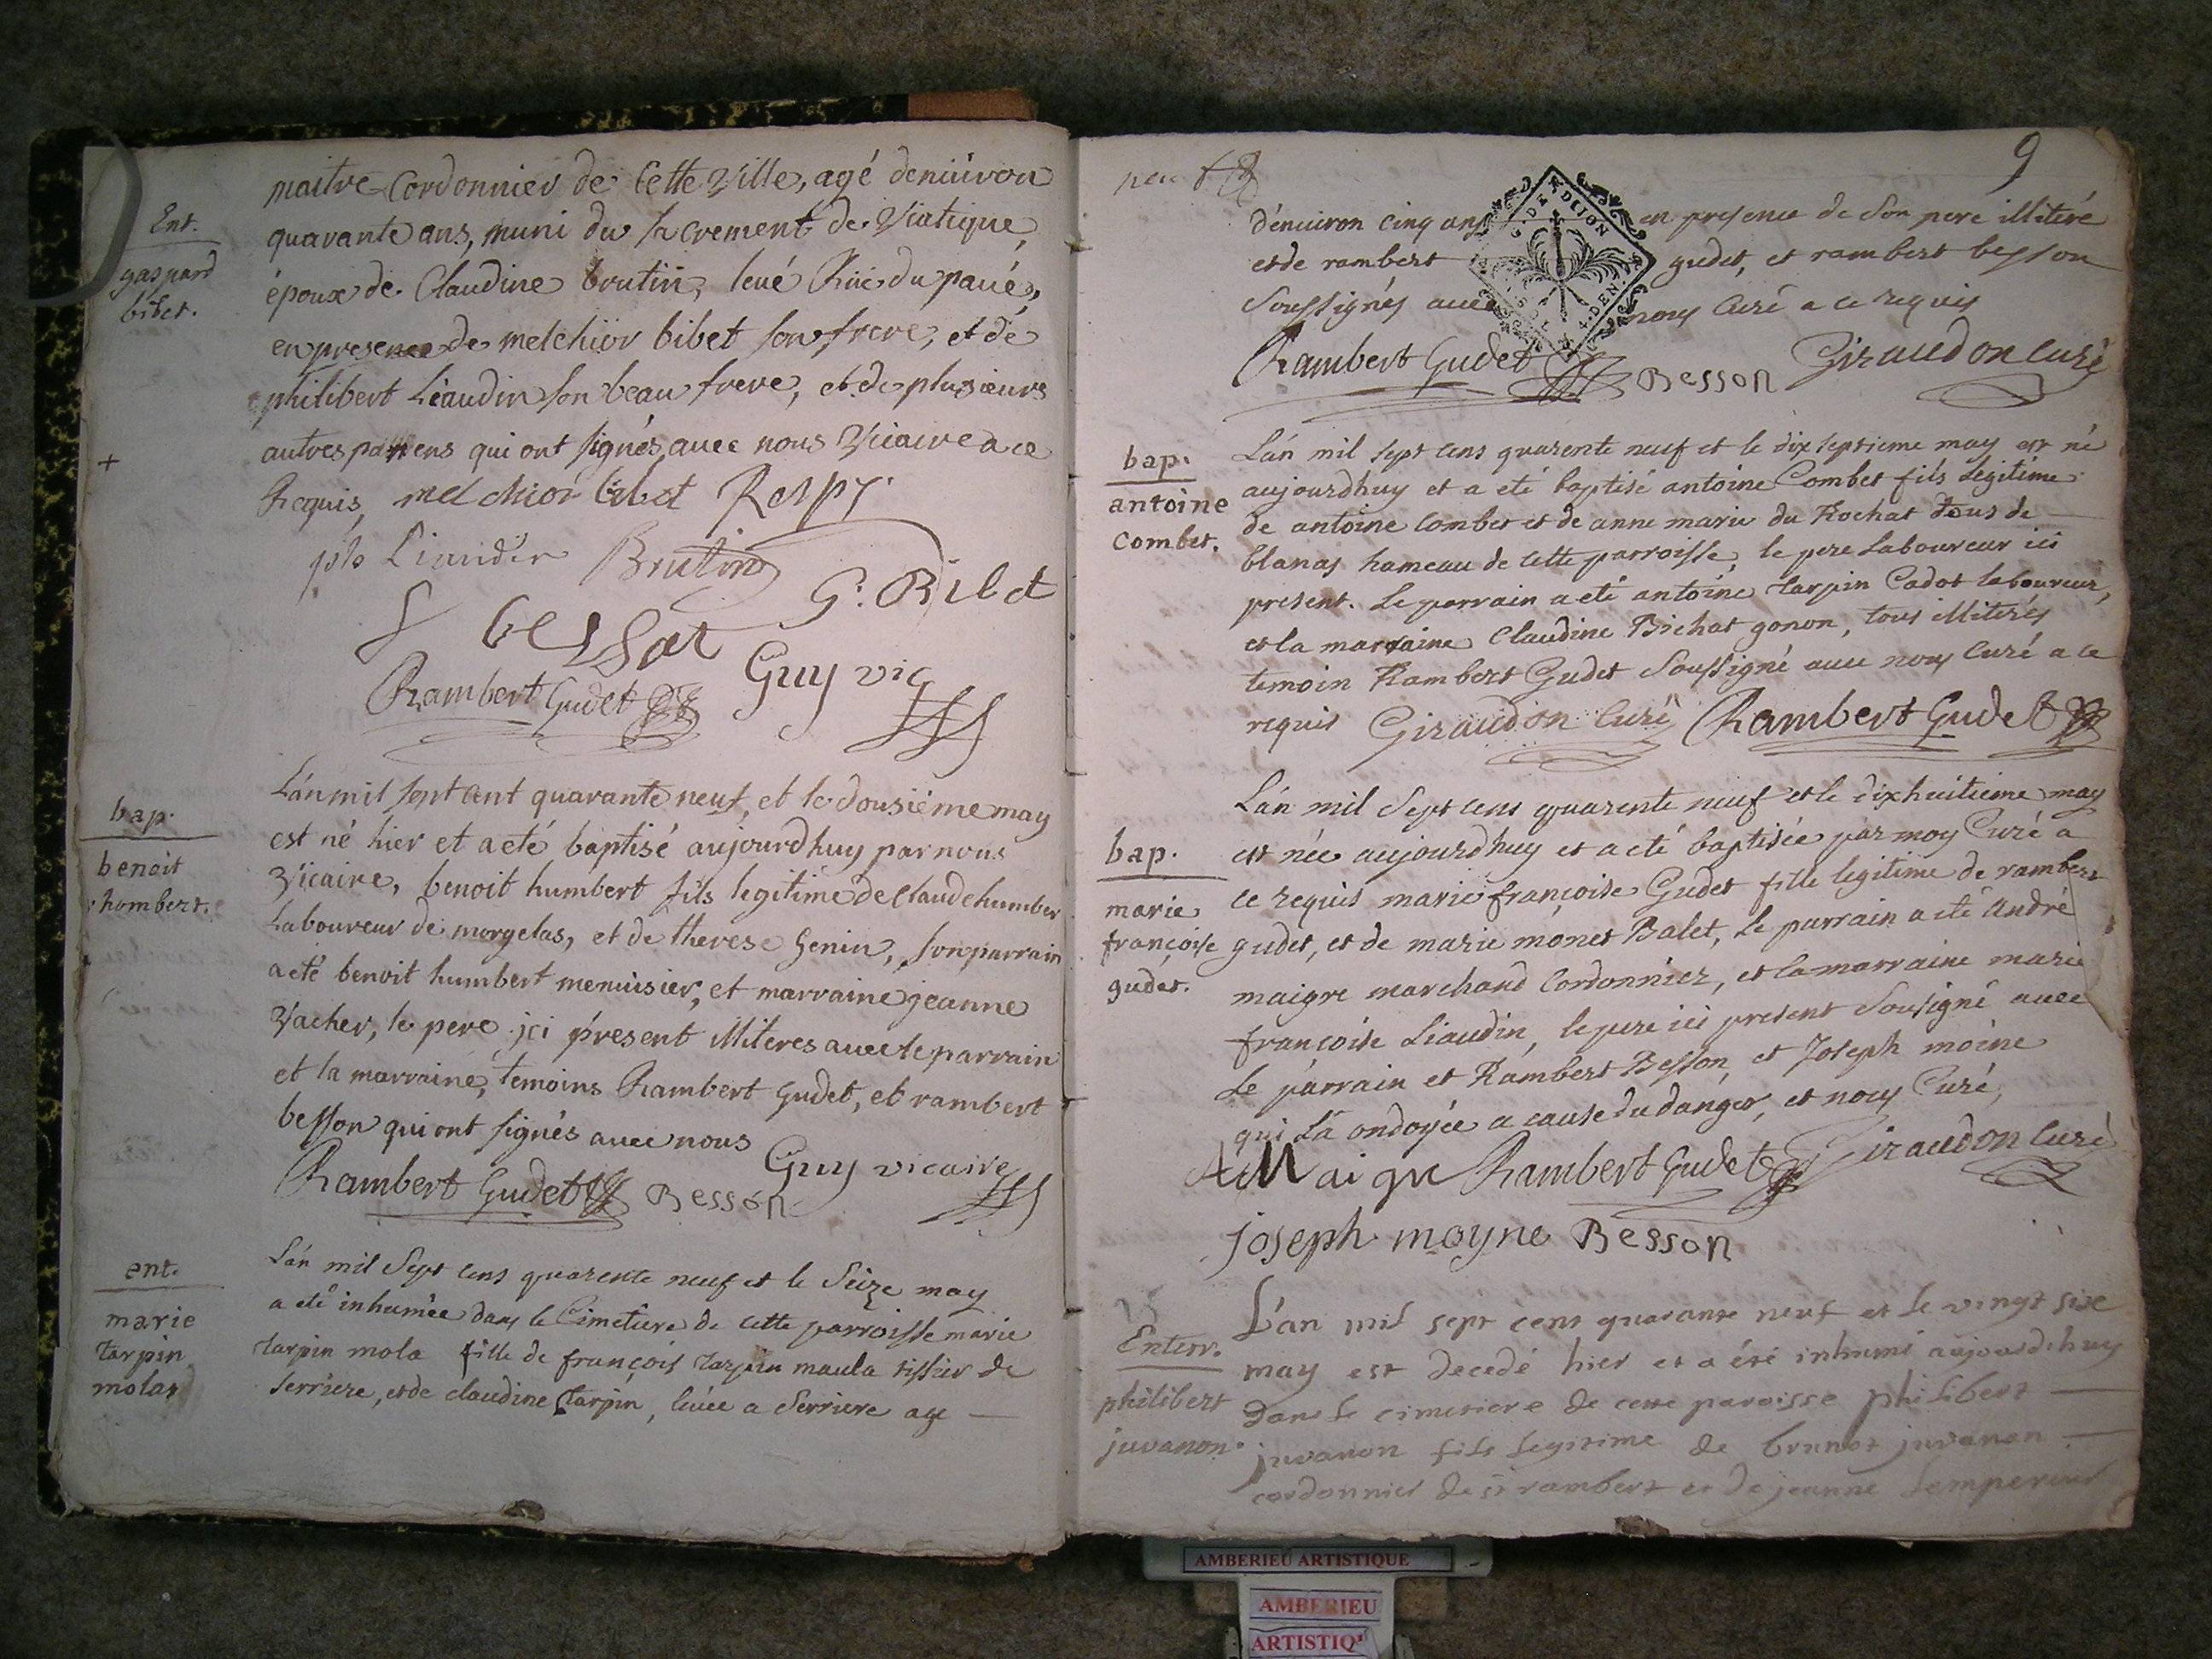 Ent.
gaspard
bibet.
maitre Cordonnier de Cette Ville, agé denüiron
quarante ans, muni du sacrement de Viatique,
époux de Claudine brutin, leué Rüe du paué,
en presence de melchiör bibet son frere, et de
philibert Liaudin son beau frere, et de plusieurs
autres parens qui ont signés auec nous Vicaire a ce
Requis, melchior bibet Respy
Liaudin Brutin
G. Bibet
bessat
Rambert Gudet Guy vic
bap.
benoit
humbert.
L'an mil sept cent quarante neuf, et le dousiéme may
est né hier et a eté baptisé aujourdhuy par nous
Vicaire, benoit humbert fils legitime de Claude humber
Laboureur de morgelas, et de therese Genin, son parrain
a eté benoit humbert menuisier, et marraine jeanne
Vacher, le pere jci présent illiteres auec le parrain
et la marraine, temoins Rambert Gudet, et rambert
besson qui ont signés auec nous
Guy vicaire
Rambert Gudet Besson
ent.
marie
tarpin
molar
L'an mil Sept cens quarente neuf et le Seize may
a eté inhumée dans le Cimetiere de cette parroisse marie
tarpin mola fille de françois tarpin maula tissier de
serriere, et de claudine tarpin, leuée a Serriere age
9
d'enuiron cinq ans en presence de Son pere illiteré
et de rambert gudet, et rambert besson
Soussignés auec nous Curé a ce requis
DE DIJON
4. DEN
Rambert Gudet Besson Giraudon Curé
bap.
antoine
Combet.
L'an mil sept cens quarente neuf et le dix septieme may est né
aujourdhuy et a eté baptisé antoine Combet fils legitime
de antoine Combet et de anne marie du Rochat tous de
blanas hameau de cette parroisse, le pere Laboureur ici
present. Le parrain a eté antoine tarpin Cadot laboureur,
et la marraine Claudine Bichat gonon, tous illiterés
temoin Rambert Gudet Soussigné auec nous Curé a ce
requis Giraudon Curé Rambert Gudet
bap.
marie
françoise
gudet.
L'an mil Sept cens quarente neuf et le dixhuitieme may
est née aujourdhuy et a eté baptisée par moy Curé a
ce requis marie françoise Gudet fille legitime de rambert
gudet, et de marie mónet Balet, Le parrain a eté André
maigre marchand Cordonnier, et la marraine marie
françoise Liaudin, le pere ici present Sousigné auec
Le parrain et Rambert Besson, et Joseph moine
qui l'a ondoyée a cause du danger, et nous Curé,
A Maigre Rambert Gudet Giraudon Curé
joseph moyne Besson
Enterr.
philibert
juvanon.
L'an mil sept cent quarante neuf et le vingt sixe
may est decedé hier et a été inhumé aujourd'huy
dans le cimetiere de cette paroisse philibert
juvanon fils legitime de brunot juvanon
cordonnier de st rambert et de jeanne Lempereur
AMBERIEU ARTISTIQUE
AMBERIEU
ARTISTIQ